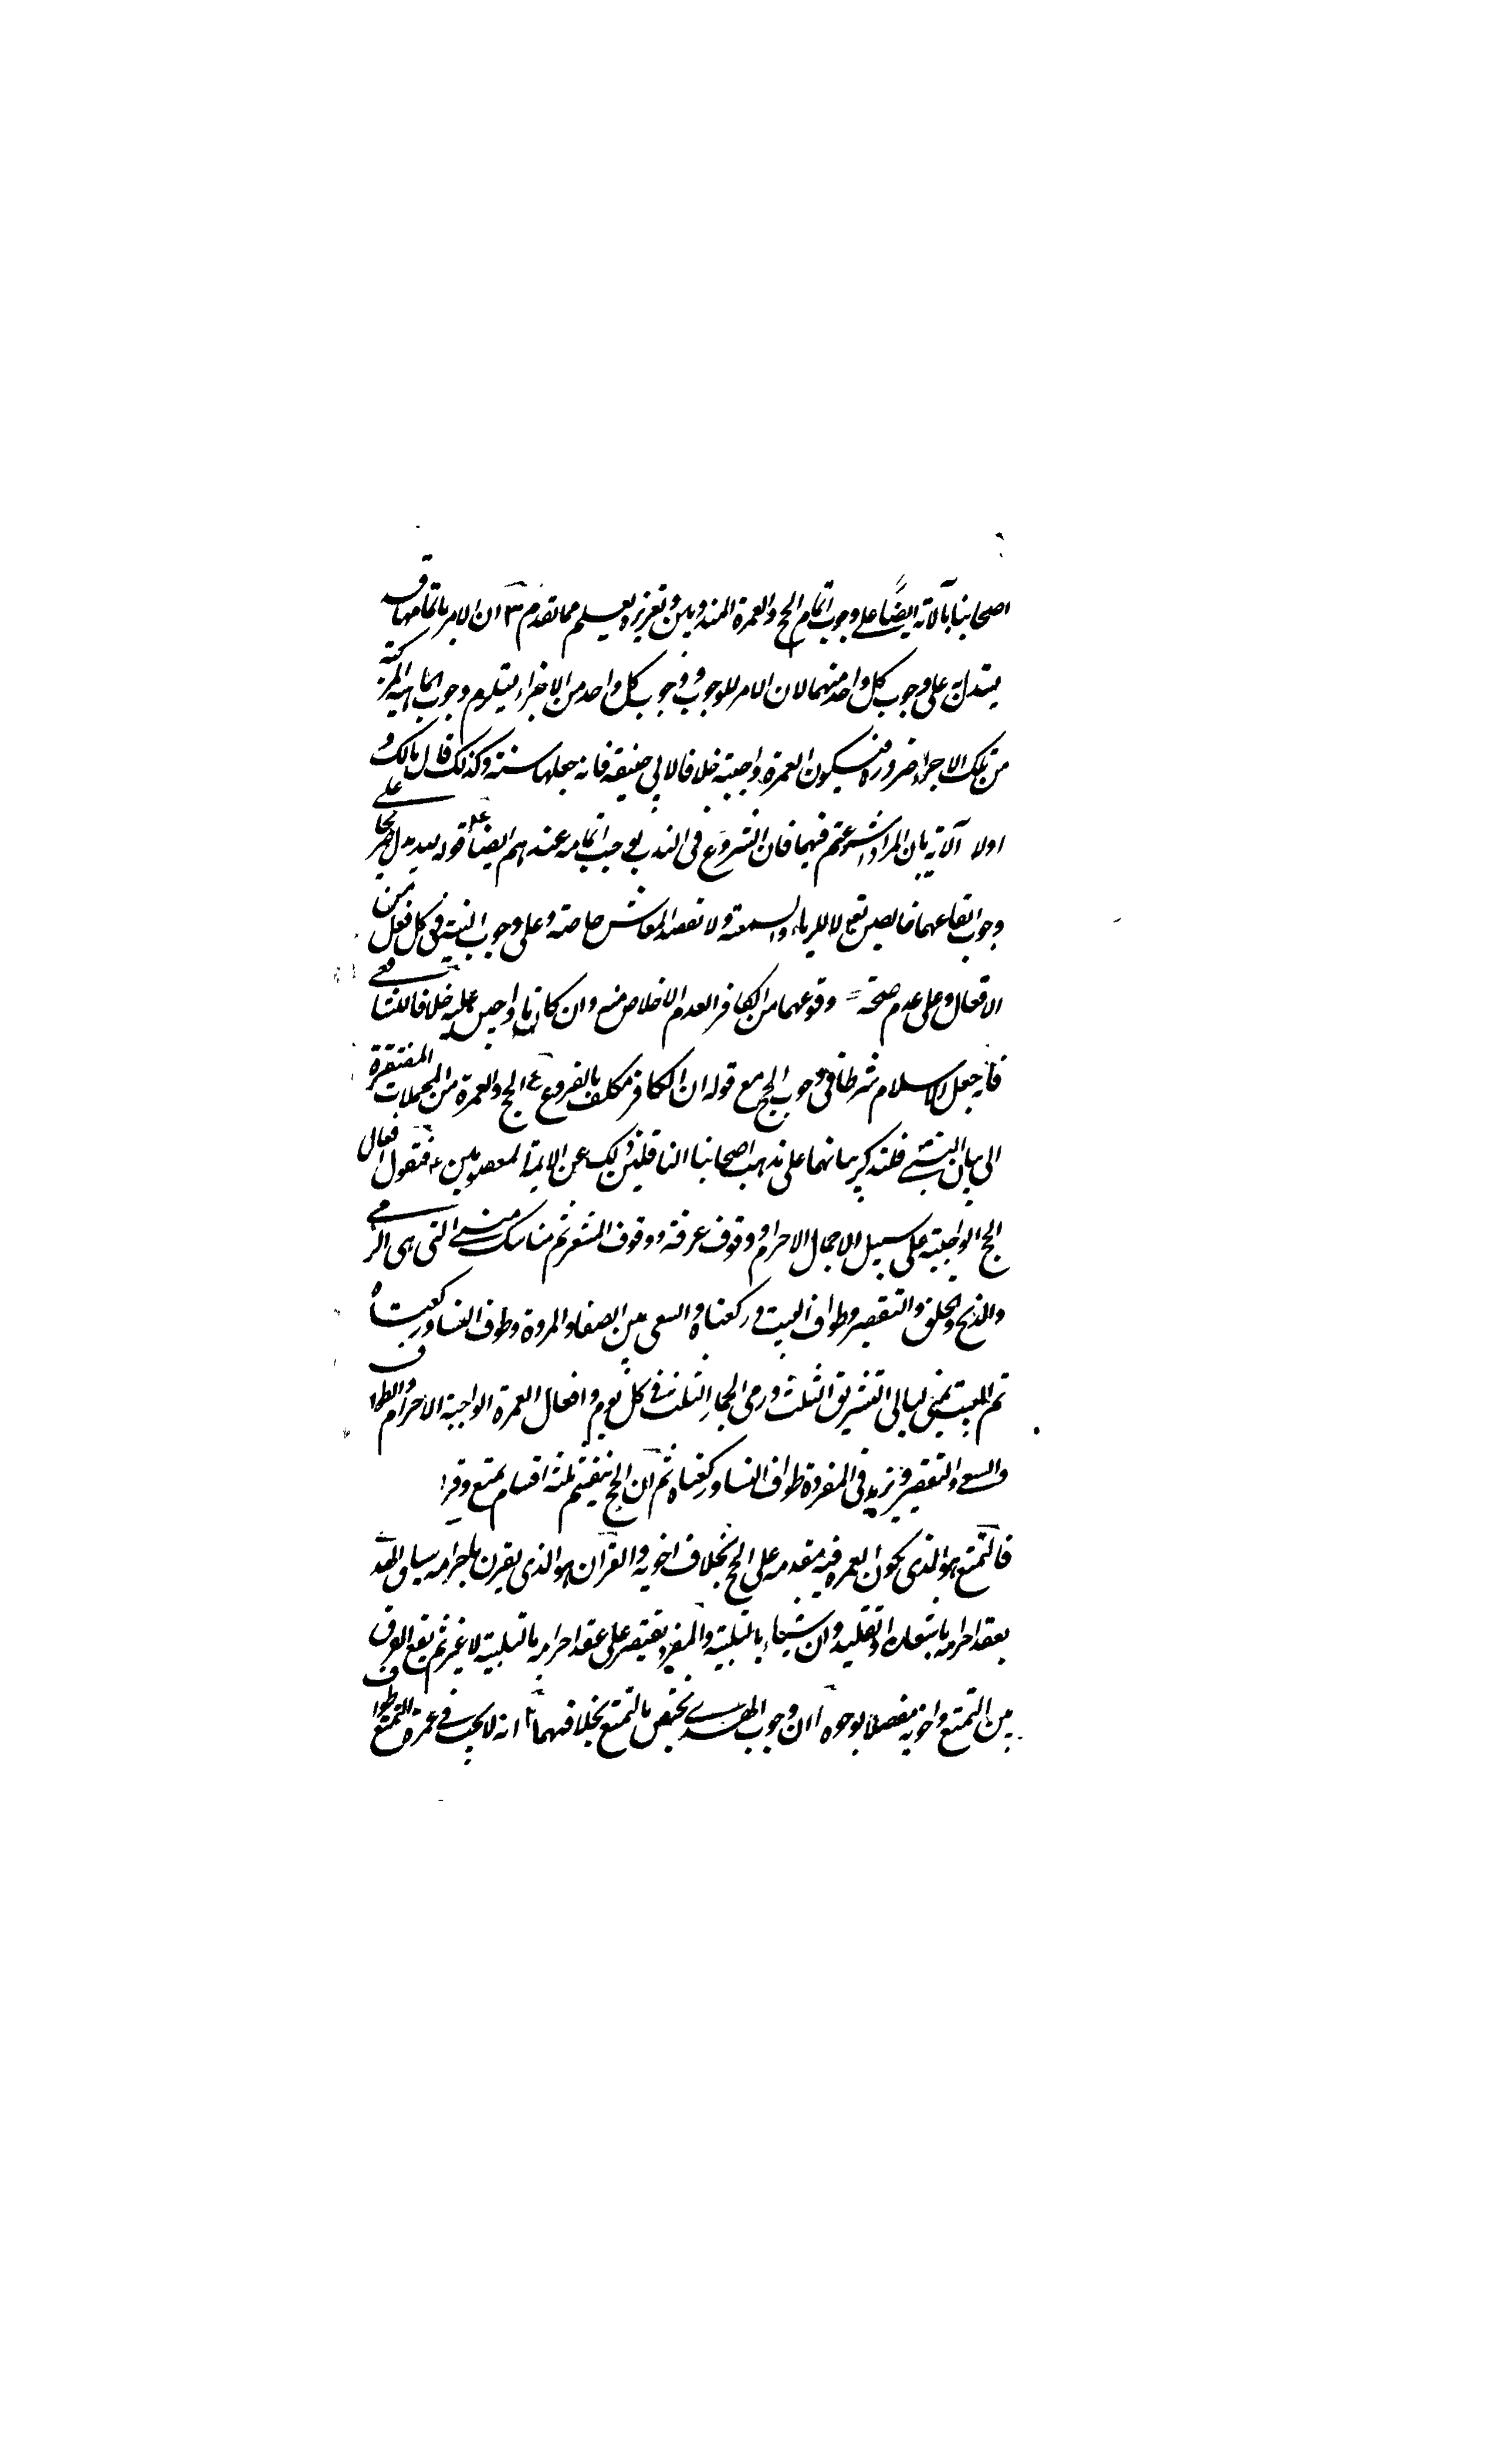 اصحابنا بالآية ايضًا على وجوب اتمام الحج والعمرة المندوبين وتعزيره يعلم مما تقدم ٣ ان الامر باتمامها قد
يستدل به على وجوب كل واحد منهما لان الامر للوجوب ووجوب كل واحد من الاجزاء يستلزم وجوب الماهية المركبة
من تلك الاجزاء ضرورة فيكون العمرة واجبة خلافا لابي حنيفة فانه جعلها سنة وكذلك قال مالك و
اولا الآية بان المراد اذا شرعتم فيهما فان الشروع في الندب يوجب اتمامه عندهم ايضا ٤ قوله لله يدل على
وجوب ايقاعهما خالصين لله لا للرياء والسمعة ولا لقصد المعاش خاصة وعلى وجوب النية في كل فعل من
الافعال وعلى عدم صحة وقوعهما من الكافر لعدم الاخلاص منه وان كانا واجبين عليه خلافا للشافعي
فانه جعل الاسلام شرطا في وجوب الحج مع قوله ان الكافر مكلف بالفروع ٤ الحج والعمرة من المجملات المفتقرة
الى بيان النبي فلنذكر بيانهما على مذهب اصحابنا الناقلين ذلك عن الائمة المعصومين ع فنقول افعال
الحج الواجبة على سبيل الاجمال الاحرام ووقوف عرفة ووقوف المشعر ثم مناسك منى التي هي الرمي
والذبح والحلق والتقصير وطواف البيت وركعتاه والسعي بين الصفا والمروة وطواف النساء وركعتاه
ثم المبيت بمنى ليالي التشريق الثلث ورمي الجمار الثلث في كل يوم وافعال العمرة الواجبة الاحرام والطواف
والسعي والتقصير ويزيد في المفردة طواف النساء وركعتاه ثم ان الحج ينقسم ثلثة اقسام تمتع وقران
فالتمتع هو الذي يكون العمرة فيه مقدمة على الحج بخلاف اخويه والقران هو الذي يقرن باحرامه سياق الهدي
يعقد احرامه باشعاره او تقليده وان شاء بالتلبية والمفرد يقتصر على عقد احرامه بالتلبية لا غير ثم يقع الفرق
بين التمتع واخويه مفصلا بوجوه ١ ان وجوب الهدي يختص بالتمتع بخلافهما ٢ انه لا يجب في عمرة التمتع طواف